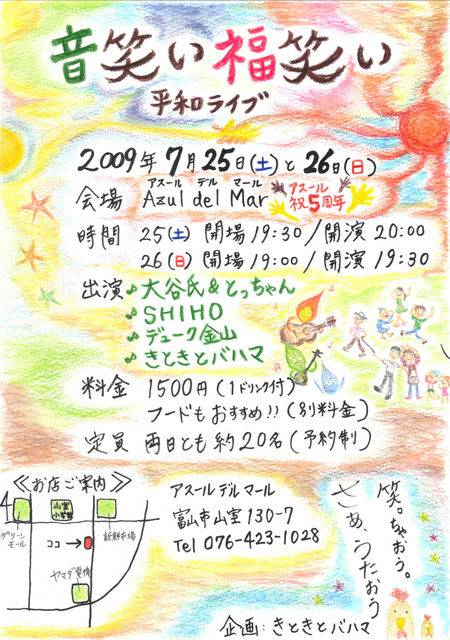 音笑い福笑い
平和ライブ
2009年 7月25日(土)と26日(日)
アスール デル マール
会場 Azul del Mar
アスール
祝5周年
時間 25(土) 開場19:30/開演20:00
26(日) 開場19:00/開演19:30
出演♪大谷氏&とっちゃん
♪SHIHO
♪デューク金山
♪きときとバハマ
料金 1500円(1ドリンク付)
フードもおすすめ!!(別料金)
定員 両日とも約20名(予約制)
≪お店ご案内≫
山室
小学校
グリーン
モール
ココ→
新鮮市場
ヤマダ電機
アスールデルマール
富山市山室130-7
Tel 076-423-1028
笑。ちゃおう。
さあ、うたおう
企画:きときとバハマ